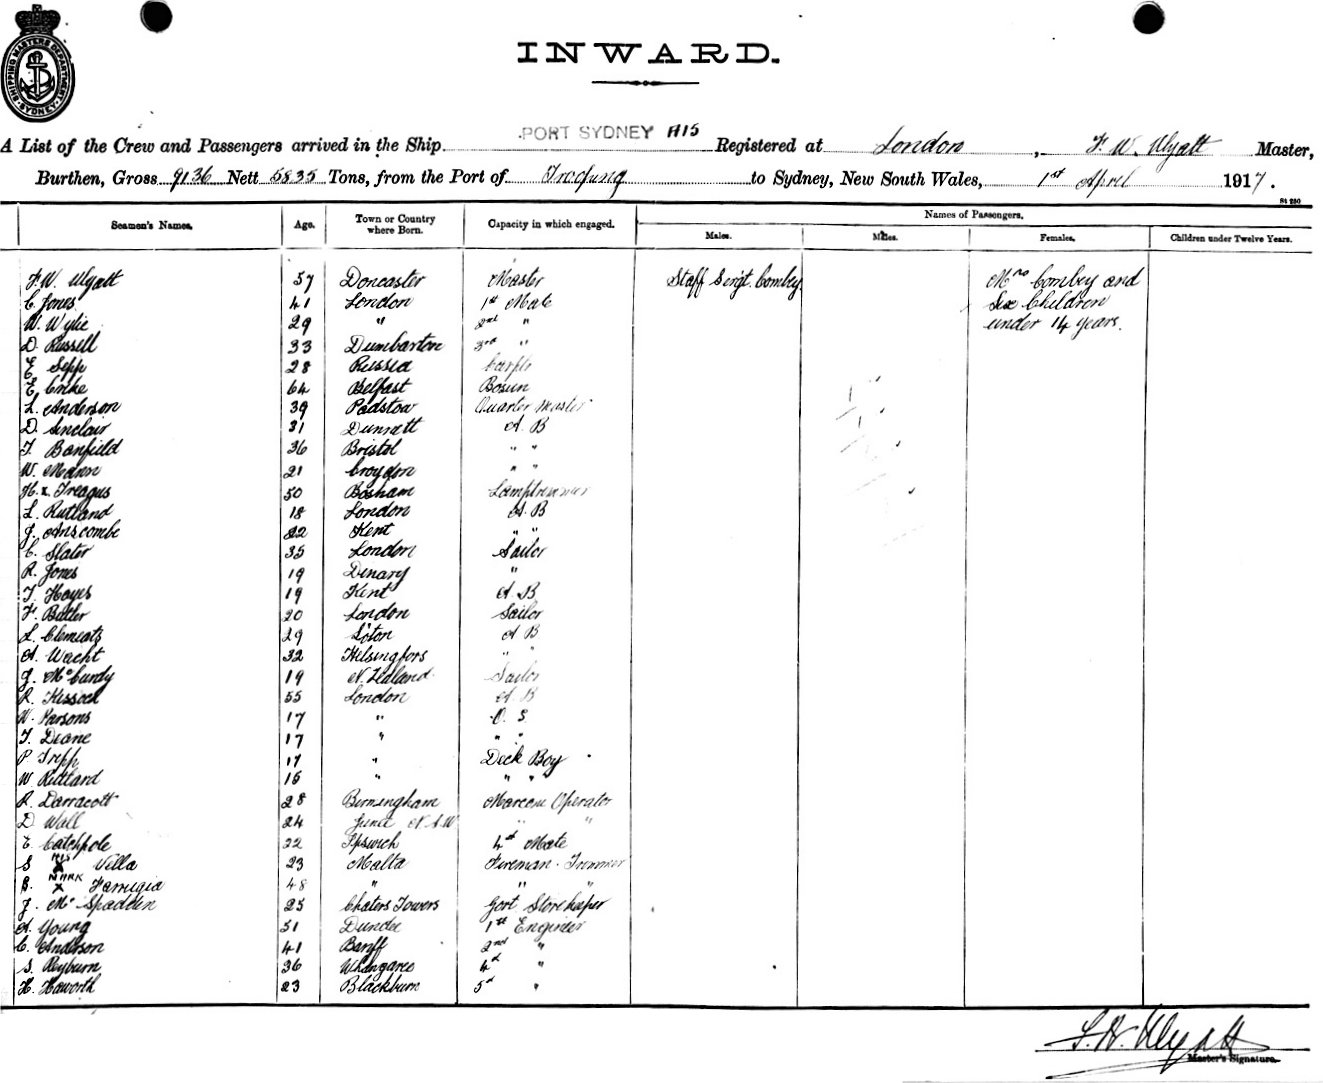 SHIPPING MASTERS DEPARTMENT SYDNEY
INWARD.
A List of the Crew and Passengers arrived in the Ship PORT SYDNEY Registered at London, F. W. Wyatt Master,
Burthen, Gross 9136 Nett 5835 Tons, from the Port of to Sydney, New South Wales, 1st April 1917.
Seamen's Names. Age. Town or Country where Born. Capacity in which engaged. Names of Passengers.
Males. Males. Females. Children under Twelve Years.
F. W. Wyatt 57 Doncaster Master Staff Sergt. Combey Mrs Combey and
C. Jones 41 London 1st Mate Six Children
W. Wylie 29 " 2nd " under 14 years.
D. Russell 33 Dumbarton 3rd "
E. Sepp 28 Russia
E. 64 Belfast Bosun
L. Anderson 39 Padstow Quarter Master
D. Sinclair 31 Dunnett A B
T. Banfield 36 Bristol " "
W. Mann 21 Croydon " "
H. Treagus 50 Bosham Lamptrimmer
L. Rutland 18 London A. B
J. Anscombe 22 Kent " "
C. Slater 35 London Sailor
R. Jones 19 "
T. Hayes 19 Kent A. B
F. Butler 20 London Sailor
L. Clements 29 A B
A. Wacht 32 Helsingfors " "
J. McCurdy 19 N. Zealand Sailor
R. Kissock 55 London A B
W. Parsons 17 " O. S.
T. Diane 17 " " "
P Tripp 17 " Deck Boy
W. Rutland 16 " " "
R. Darracott 28 Birmingham Marconi Operator
D Wall 24 Junee N.S.W " "
E. Catchpole 22 Ipswich 4th Mate
S HIS X Villa 23 Malta Fireman Trimmer
G. MARK X Farrugia 48 " " "
J. McSpadden 25 Chaters Towers Govt Storekeeper
A. Young 51 Dundee 1st Engineer
C. Anderson 41 Banff 2nd "
S. Reyburn 36 Whangarei 4th "
H. Haworth 23 Blackburn 5th "
F. W. Wyatt
Master's Signature.